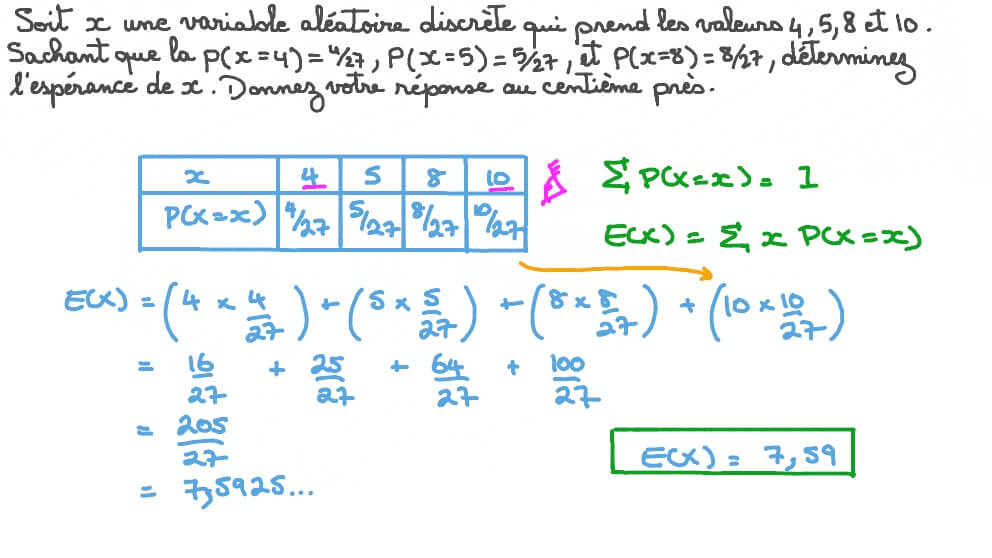 Soit x une variable aléatoire discrète qui prend les valeurs 4, 5, 8 et 10.
Sachant que la P(x=4)=4/27, P(x=5)=5/27, et P(x=8)=8/27, déterminez
l'espérance de x. Donnez votre réponse au centième près.
x 4 5 8 10
P(X=x) 4/27 5/27 8/27 10/27
Σ P(X=x) = 1
E(X) = Σ x P(X=x)
E(X) = (4 × 4/27) + (5 × 5/27) + (8 × 8/27) + (10 × 10/27)
= 16/27 + 25/27 + 64/27 + 100/27
= 205/27
= 7,5925...
E(X) = 7,59